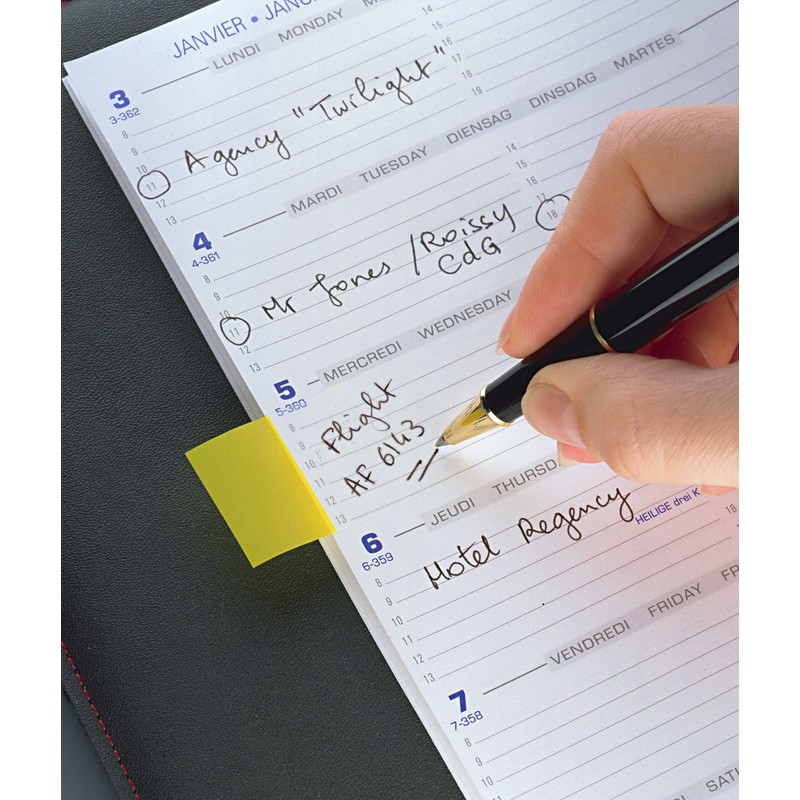 JANVIER •
LUNDI MONDAY
14
15
16
17
18
19
3
3-362
8
9
10
11
12
13
Agency "Twilight"
MARDI TUESDAY DIENSAG DINSDAG MARTES
14
15
16
17
18
4
4-361
8
9
10
11
12
13
Mr Jones / Roissy
CdG
MERCREDI WEDNESDAY
5
5-360
8
9
10
11
12
13
Flight
AF 6143
JEUDI
HEILIGE drei K
18
19
6
6-359
8
9
10
11
12
13
Hotel Regency
VENDREDI FRIDAY
7
7-358
8
9
10